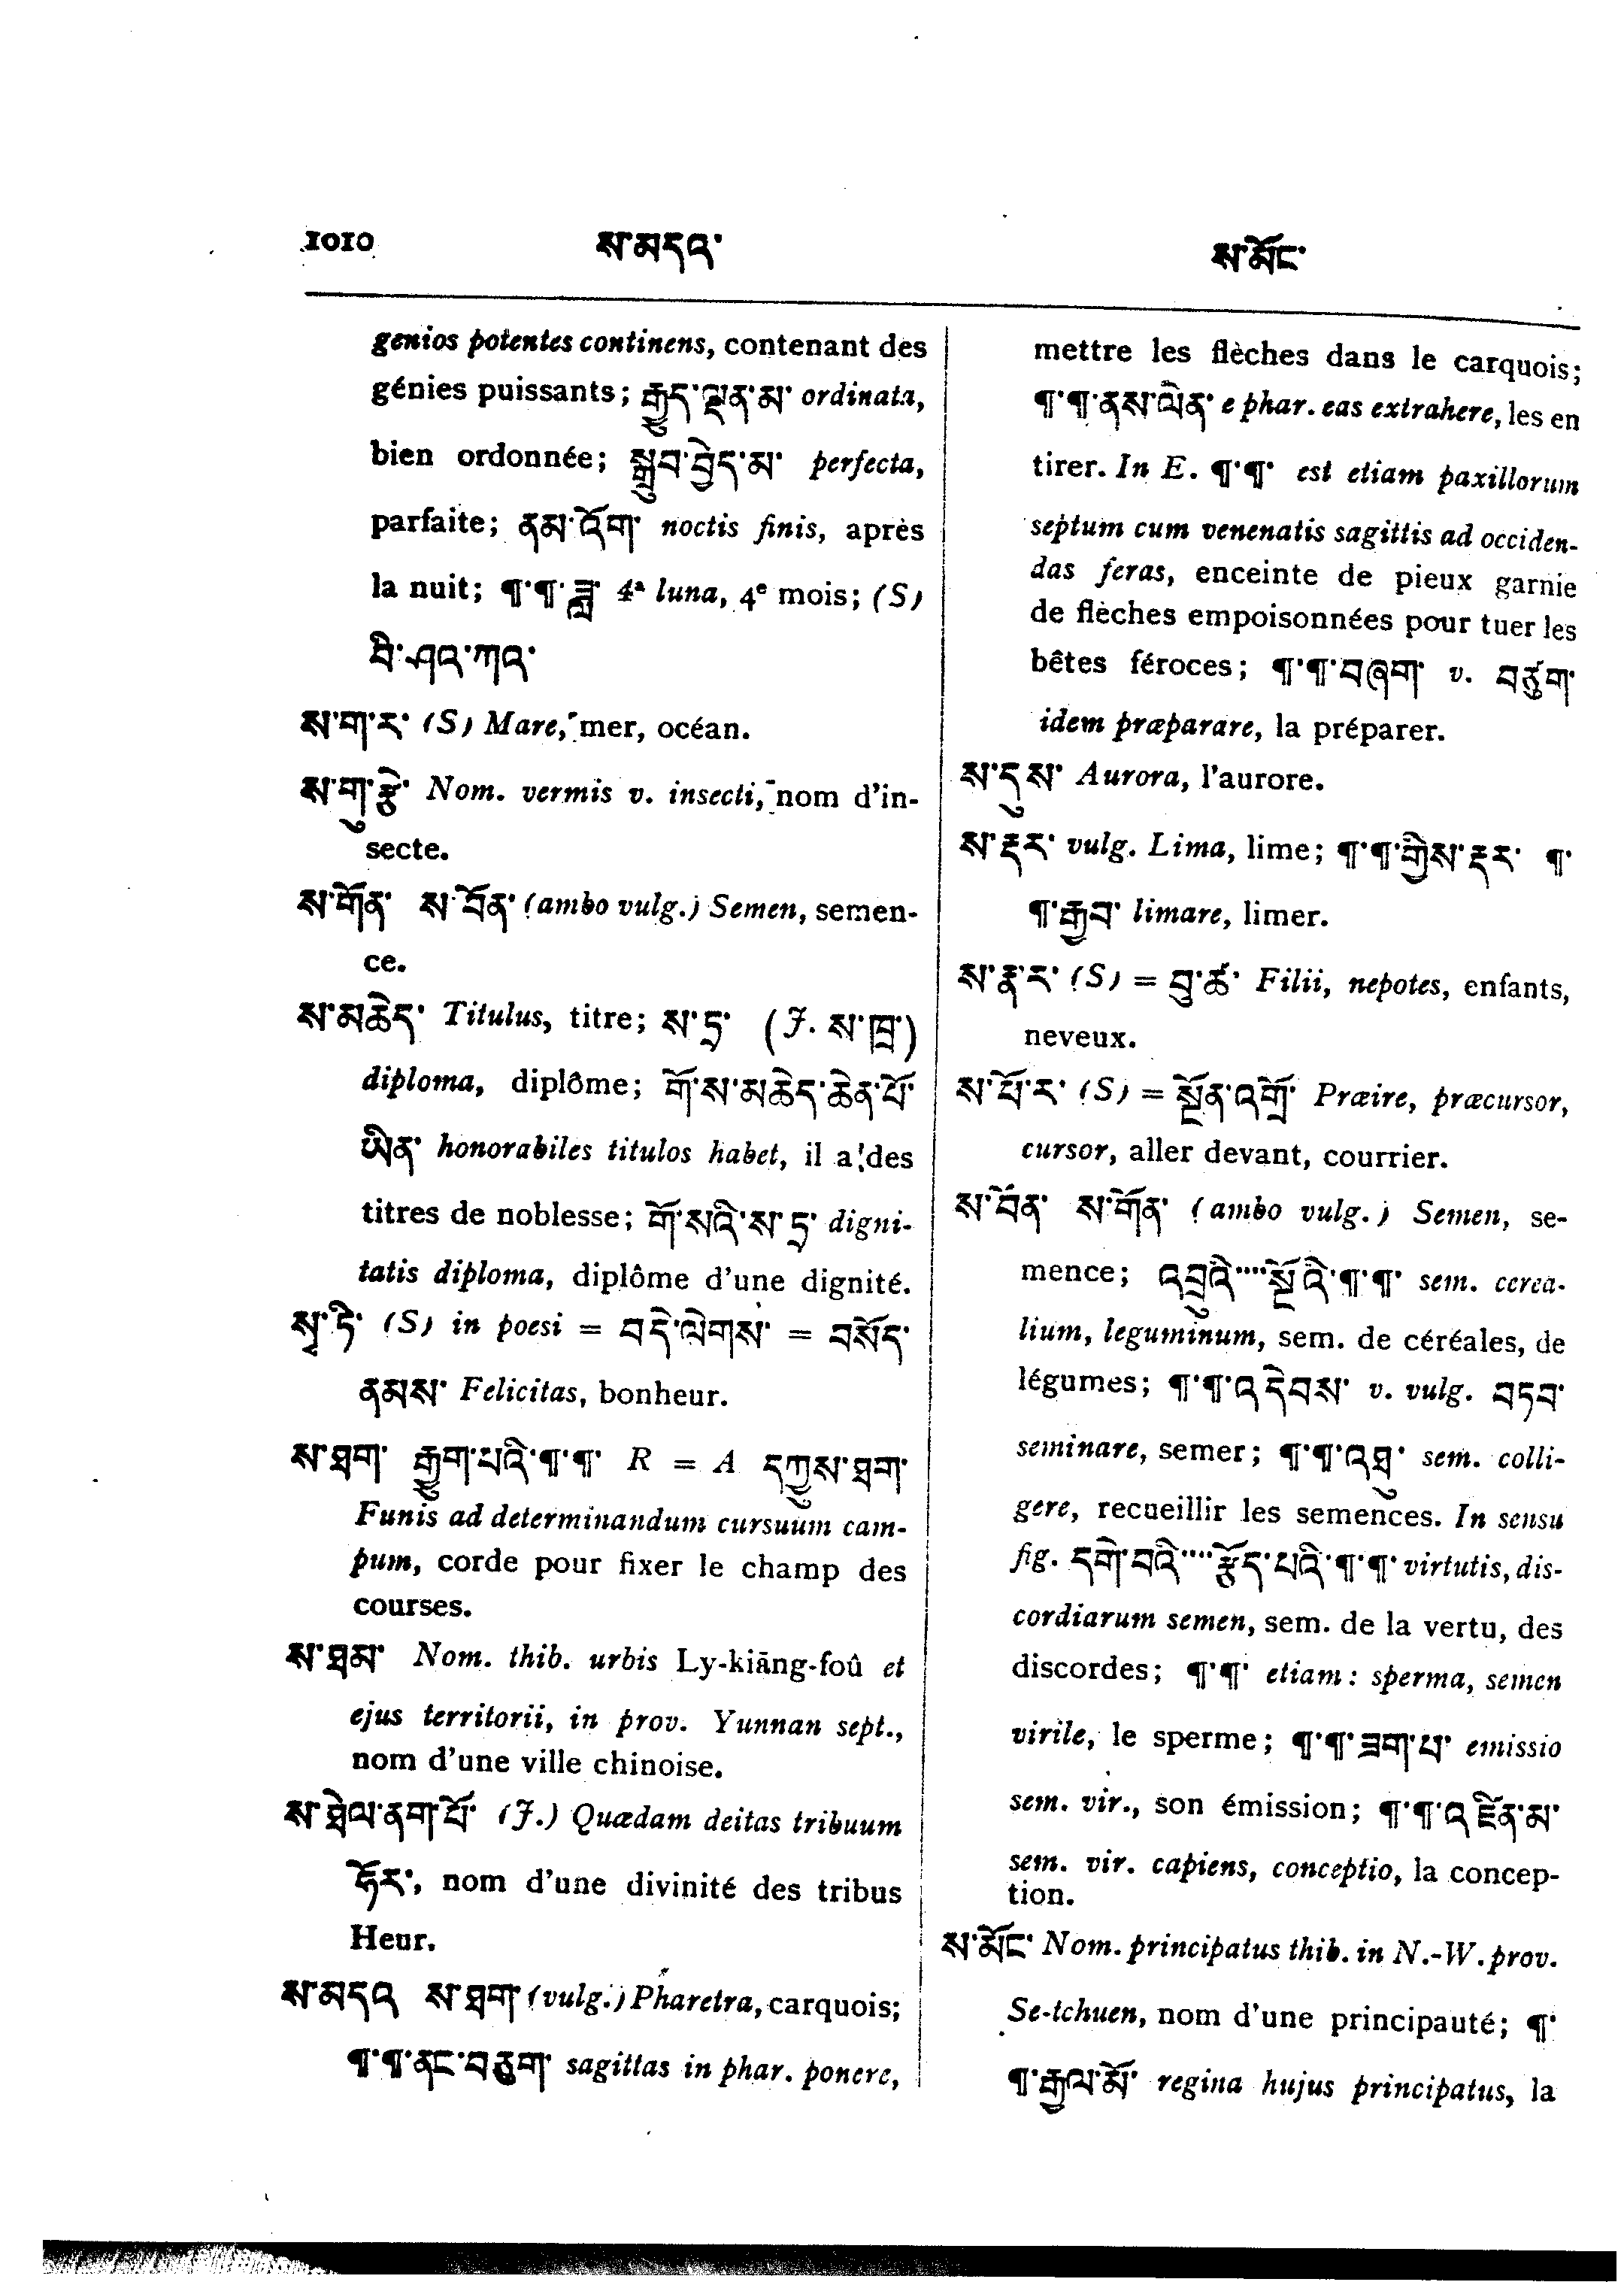 1010 ས་མདའ་ ས་མོང་
genios potentes continens, contenant des
génies puissants; རྒྱུད་ལྡན་མ་ ordinata,
bien ordonnée; སྒྲུབ་བྱེད་མ་ perfecta,
parfaite; ནམ་འོག་ noctis finis, après
la nuit; ¶་¶་ཟླ་ 4ª luna, 4e mois; (S)
བི་ཤཱའ་ཀའ་
ས་ག་ར་ (S) Mare, mer, océan.
ས་གུ་རྩེ་ Nom. vermis v. insecti, nom d'in-
secte.
ས་གོན་ ས་བོན་ (ambo vulg.) Semen, semen-
ce.
ས་མཆེད་ Titulus, titre; ས་ཏྲ་ (J. ས་ཁྲ་)
diploma, diplôme; གོ་ས་མཆེད་ཆེན་པོ་
ཡིན་ honorabiles titulos habet, il a des
titres de noblesse; གོ་སའི་ས་ཏྲ་ digni-
tatis diploma, diplôme d'une dignité.
སྭ་ཧི་ (S) in poesi = བདེ་ལེགས་ = བསོད་
ནམས་ Felicitas, bonheur.
ས་ཐག་ རྒྱུག་པའི་¶་¶་ R = A དཀྱུས་ཐག་
Funis ad determinandum cursuum cam-
pum, corde pour fixer le champ des
courses.
ས་ཐམ་ Nom. thib. urbis Ly-kiāng-foû et
ejus territorii, in prov. Yunnan sept.,
nom d'une ville chinoise.
ས་ཐེལ་ནག་པོ་ (J.) Quædam deitas tribuum
ཧོར་, nom d'une divinité des tribus
Heur.
ས་མདའ ས་ཐག་ (vulg.) Pharetra, carquois;
¶་¶་ནང་བཅུག་ sagittas in phar. ponere,
mettre les flèches dans le carquois;
¶་¶་ནས་ལེན་ e phar. eas extrahere, les en
tirer. In E. ¶་¶་ est etiam paxillorum
septum cum venenatis sagittis ad occiden-
das feras, enceinte de pieux garnie
de flèches empoisonnées pour tuer les
bêtes féroces; ¶་¶་བཞག་ v. བཙུག་
idem præparare, la préparer.
ས་དུས་ Aurora, l'aurore.
ས་རྡར་ vulg. Lima, lime; ¶་¶་གྱིས་རྡར་ ¶་
¶་རྒྱབ་ limare, limer.
ས་རྣ་ར་ (S) = བུ་ཚ་ Filii, nepotes, enfants,
neveux.
ས་པོ་ར་ (S) = སྔོན་འགྲོ་ Præire, præcursor,
cursor, aller devant, courrier.
ས་བོན་ ས་གོན་ (ambo vulg.) Semen, se-
mence; འབྲུའི་····སྔོ་འི་¶་¶་ sem. cerea-
lium, leguminum, sem. de céréales, de
légumes; ¶་¶་འདེབས་ v. vulg. བཏབ་
seminare, semer; ¶་¶་འཐུ་ sem. colli-
gere, recueillir les semences. In sensu
fig. དགེ་བའི་····རྩོད་པའི་¶་¶་ virtutis, dis-
cordiarum semen, sem. de la vertu, des
discordes; ¶་¶་ etiam: sperma, semen
virile, le sperme; ¶་¶་ཟག་པ་ emissio
sem. vir., son émission; ¶་¶་འཛིན་མ་
sem. vir. capiens, conceptio, la concep-
tion.
ས་མོང་ Nom. principatus thib. in N.-W. prov.
Se-tchuen, nom d'une principauté; ¶་
¶་རྒྱལ་མོ་ regina hujus principatus, la